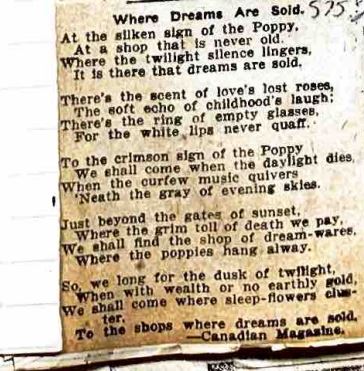 Where Dreams Are Sold. 5753
At the silken sign of the Poppy,
At a shop that is never old.
Where the twilight silence lingers,
It is there that dreams are sold.
There's the scent of love's lost roses,
The soft echo of childhood's laugh;
There's the ring of empty glasses,
For the white lips never quaff.
To the crimson sign of the Poppy
We shall come when the daylight dies
When the curfew music quivers
'Neath the gray of evening skies.
Just beyond the gates of sunset,
Where the grim toll of death we pay,
We shall find the shop of dream-wares,
Where the poppies hang alway.
So, we long for the dusk of twilight,
When with wealth or no earthly gold,
We shall come where sleep-flowers clus-
ter.
To the shops where dreams are sold.
—Canadian Magazine.